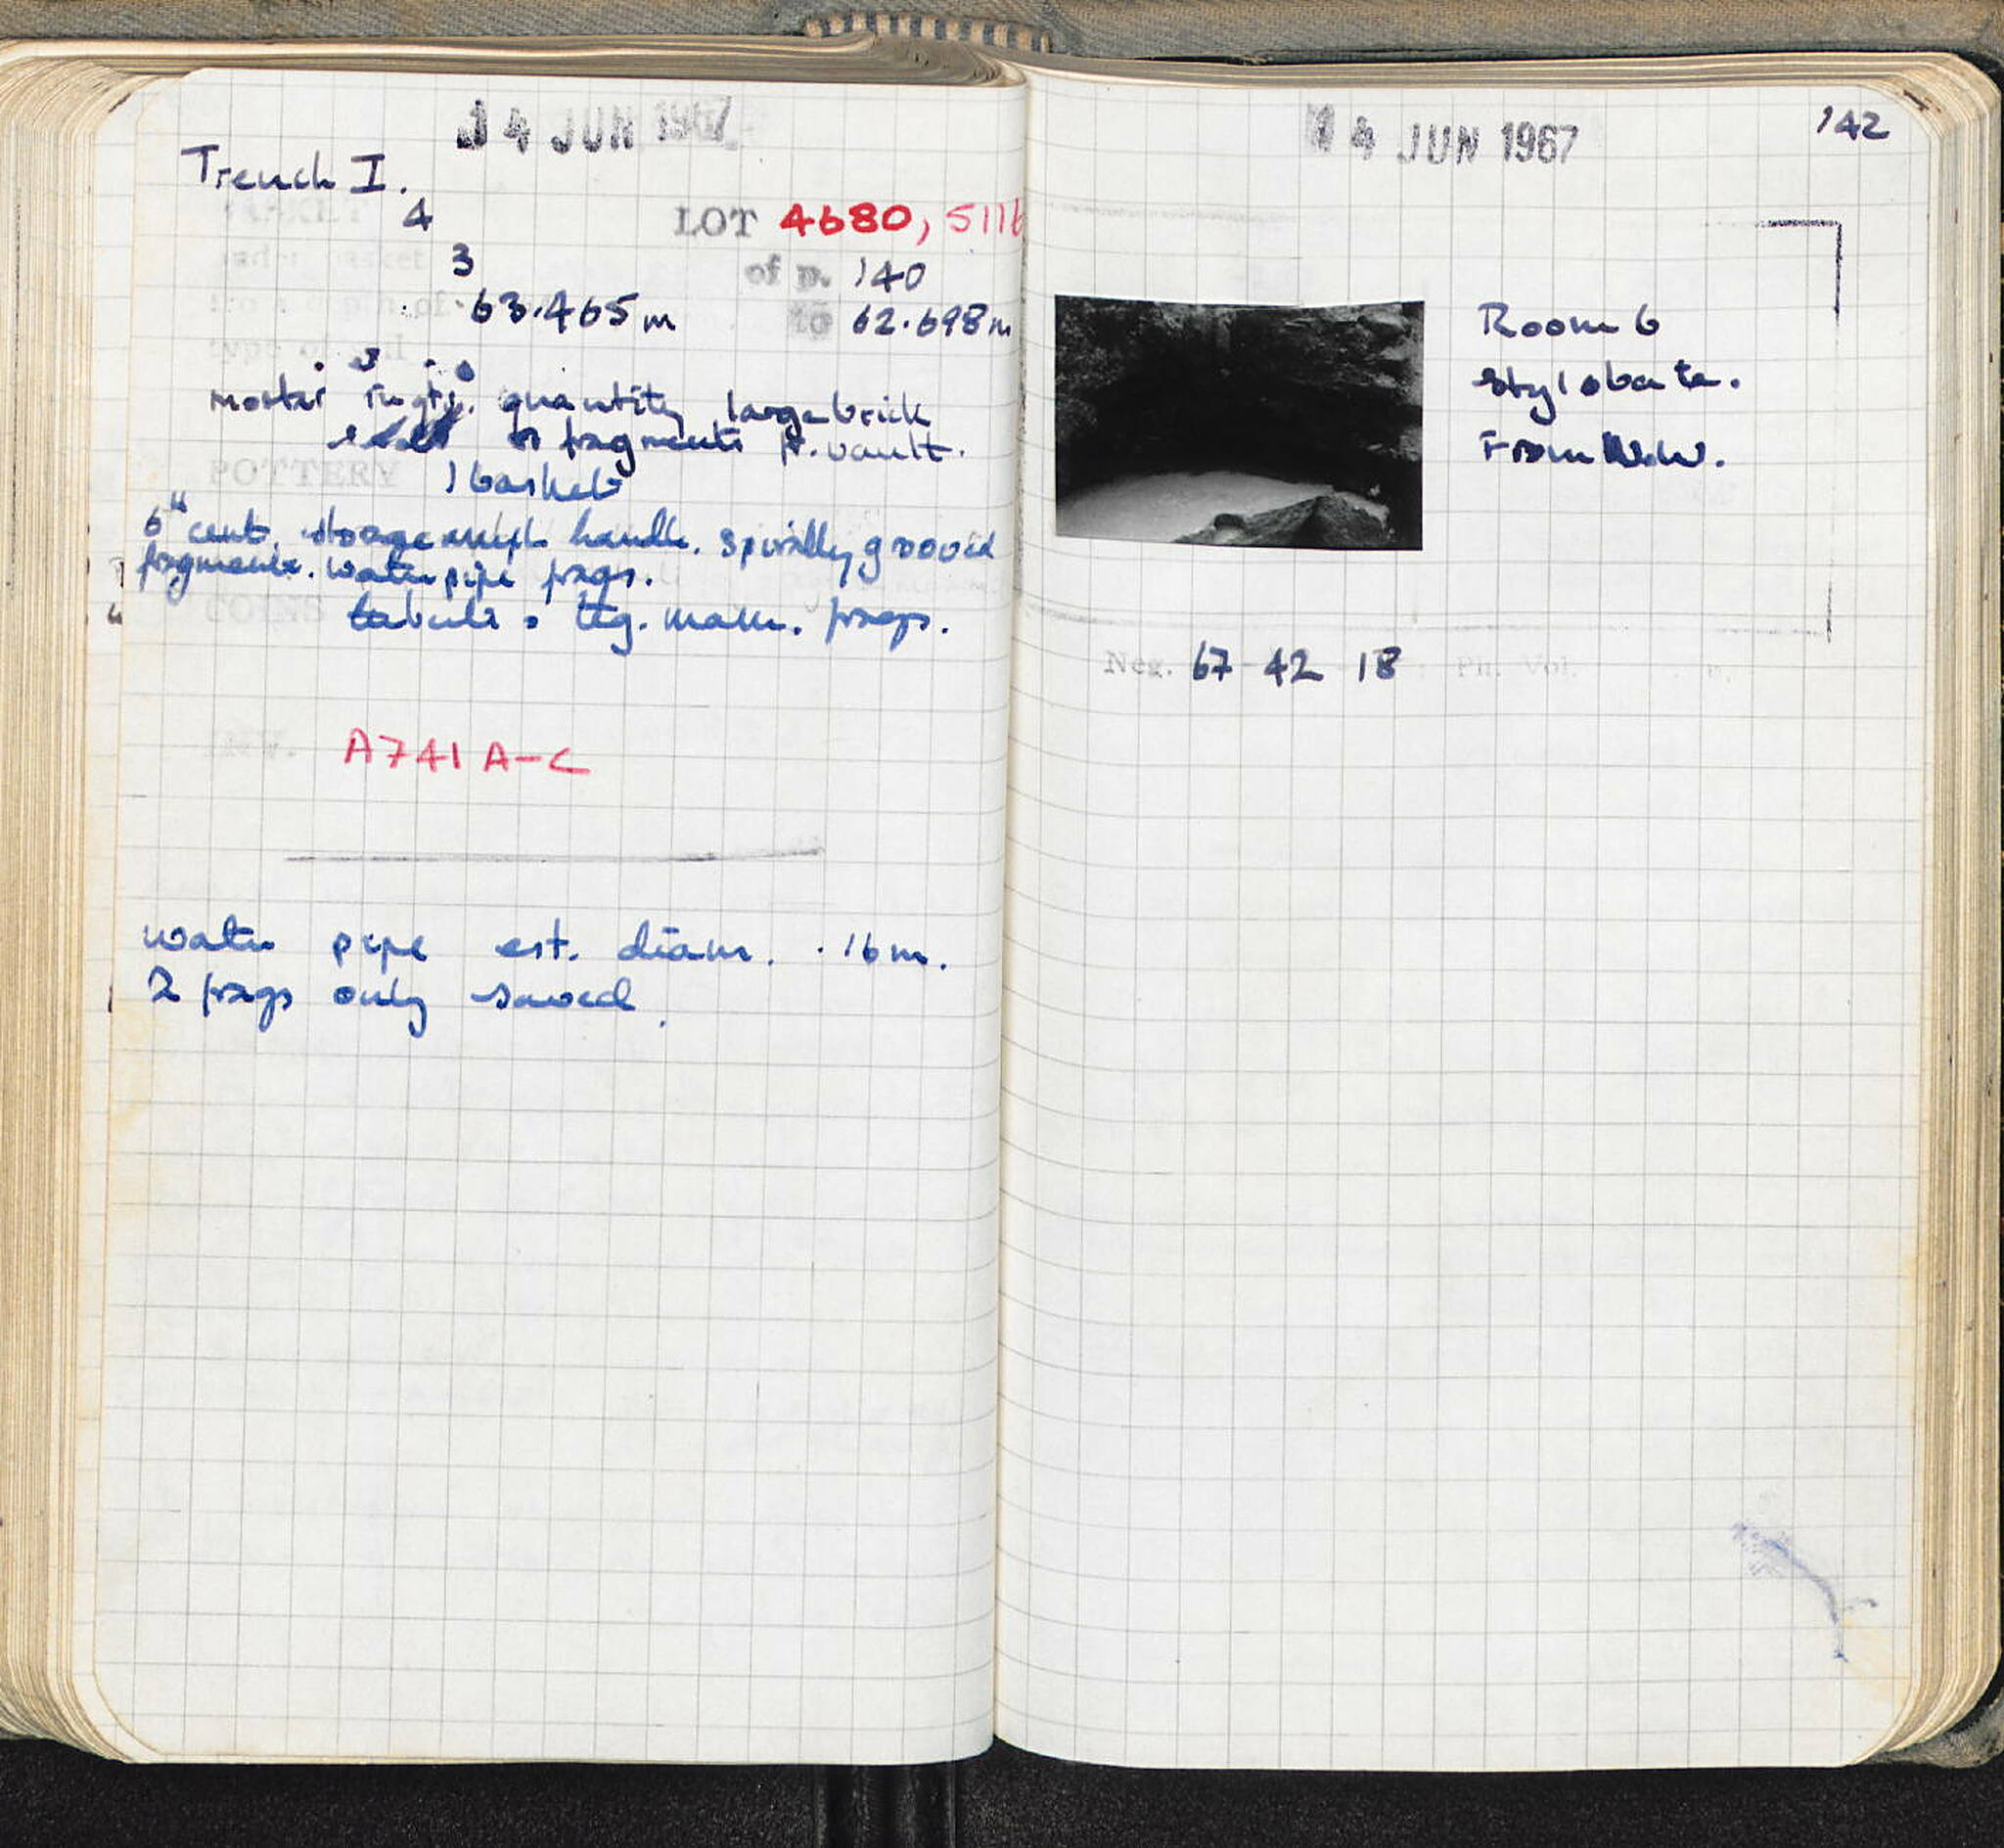 14 JUN 1967
Trench I.
BASKET 4 LOT 4680, 5116
under basket 3 of p. 140
from depth of 63.465m to 62.698m
type of soil
mortar quantity large brick
fragments fr. vault.
POTTERY 1 basket
6th cent. storage amph handle. spirally grooved
fragments. water pipe frags.
COINS tubuli + teg. mam. frags.
INV. A741 A-C
water pipe est. diam. .16m.
2 frags only saved.
14 JUN 1967
142
Room 6
stylobate.
From
Neg. 67-42-18 : Ph. Vol. p.